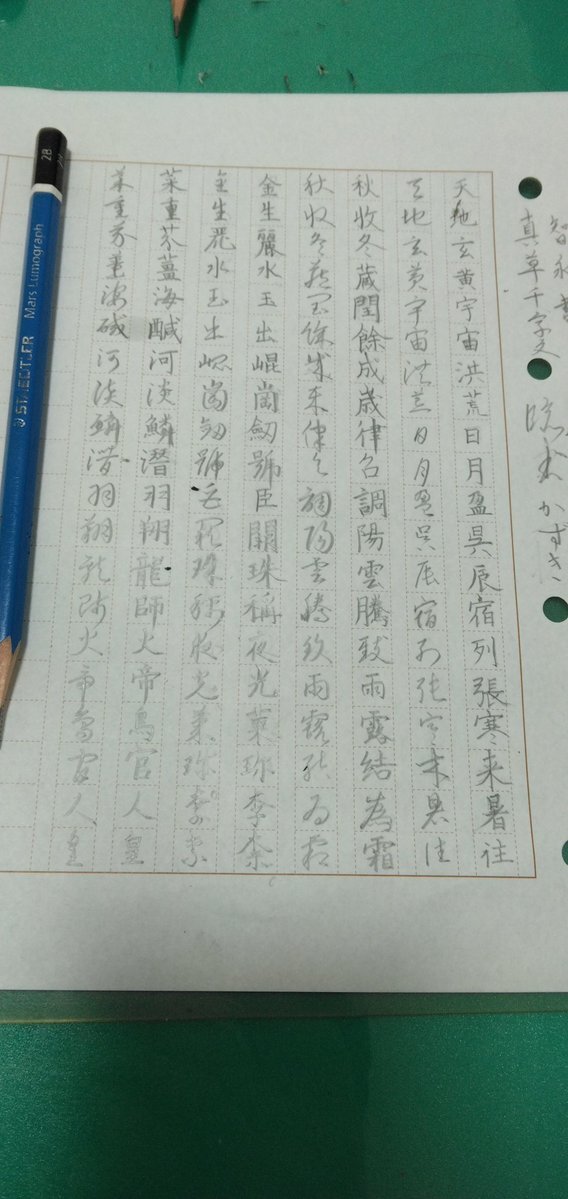 智永書
真草千字文
臨書 かずき
天地玄黄宇宙洪荒日月盈昃辰宿列張寒来暑往
天地玄黄宇宙洪荒日月盈昃辰宿列張寒来暑往
秋收冬蔵閏餘成歳律呂調陽雲騰致雨露結為霜
秋收冬蔵閏餘成歳律呂調陽雲騰致雨露結為霜
金生麗水玉出崐崗劔號巨闕珠稱夜光菓珍李柰
金生麗水玉出崐崗劔號巨闕珠稱夜光菓珍李柰
菜重芥薑海醎河淡鱗潜羽翔龍師火帝鳥官人皇
菜重芥薑海醎河淡鱗潜羽翔龍師火帝鳥官人皇
STAEDTLER Mars Lumograph 2B